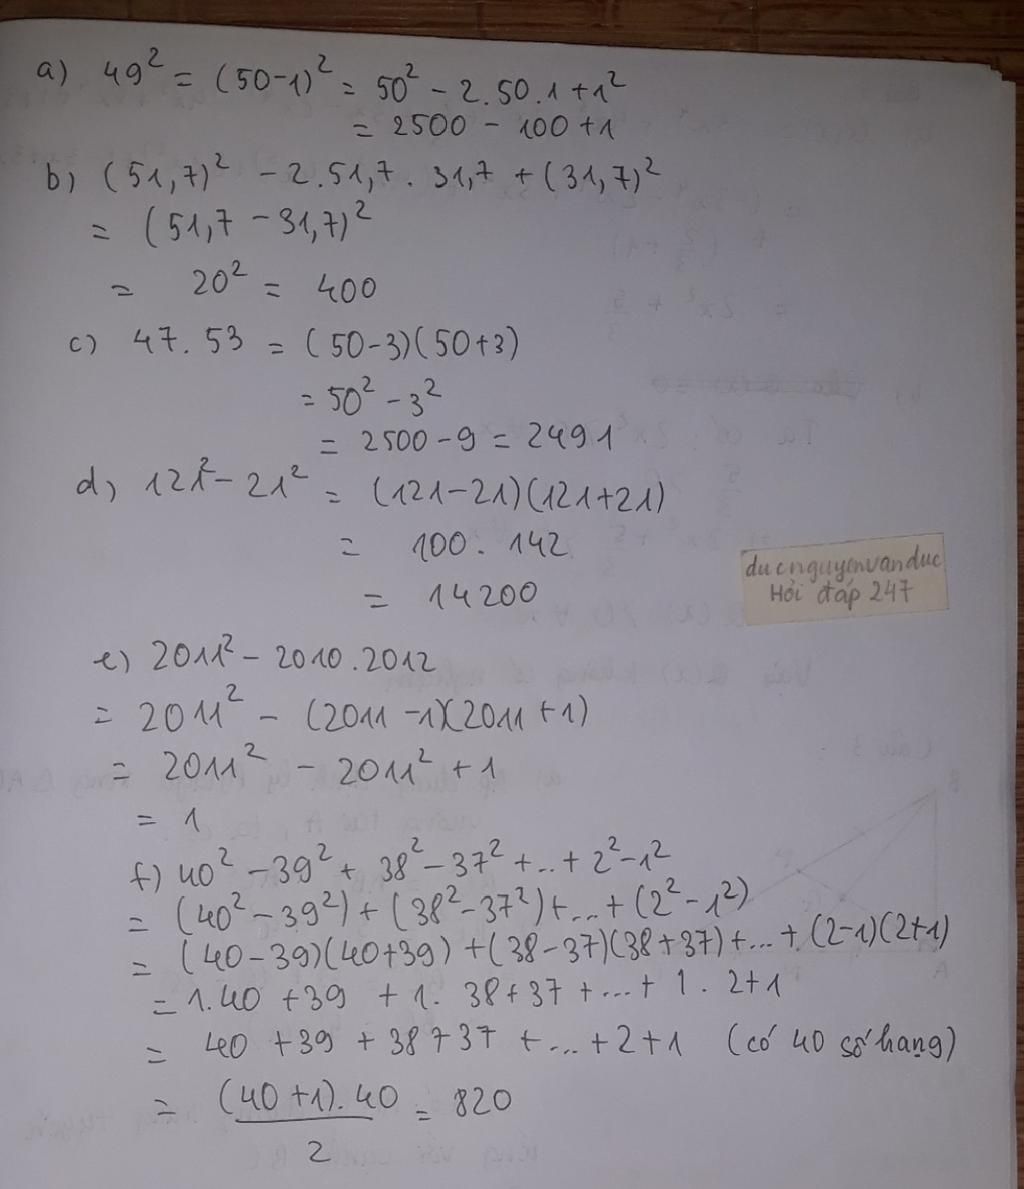 a) 49² = (50-1)² = 50² - 2.50.1 + 1²
= 2500 - 100 + 1
b) (51,7)² - 2.51,7. 31,7 + (31,7)²
= (51,7 - 31,7)²
= 20² = 400
c) 47. 53 = (50-3)(50+3)
= 50² - 3²
= 2500 - 9 = 2491
d) 121² - 21² = (121-21)(121+21)
= 100. 142
= 14200
ducnguyenvanduc
Hỏi đáp 247
e) 2011² - 2010.2012
= 2011² - (2011 -1)(2011 +1)
= 2011² - 2011² + 1
= 1
f) 40² - 39² + 38² - 37² + .. + 2² - 1²
= (40² - 39²) + (38² - 37²) + ... + (2² - 1²)
= (40-39)(40+39) + (38-37)(38+37) + ... + (2-1)(2+1)
= 1.40 + 39 + 1. 38 + 37 + ... + 1. 2+1
= 40 + 39 + 38 + 37 + ... + 2 + 1 (có 40 số hạng)
= (40 + 1). 40 / 2 = 820